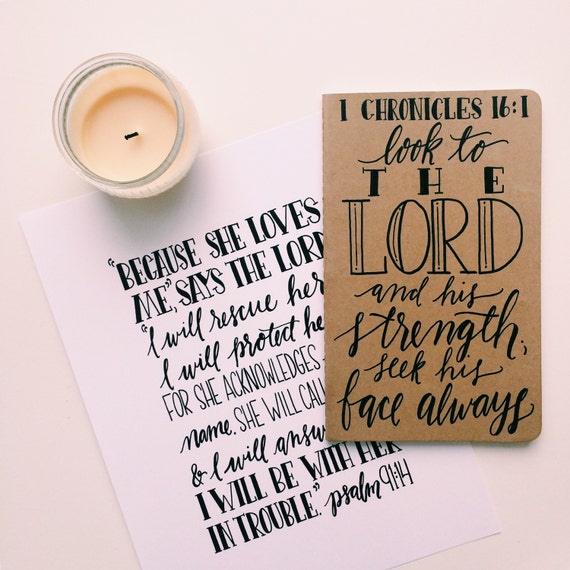 1 CHRONICLES 16:1
look to
THE
LORD
and his
strength;
seek his
face always
"BECAUSE SHE LOVES
ME," SAYS THE LORD
"I will rescue her
I will protect he
FOR SHE ACKNOWLEDGES
name. SHE WILL CALL
& I will answ
I WILL BE WITH HER
IN TROUBLE." psalm 91:14